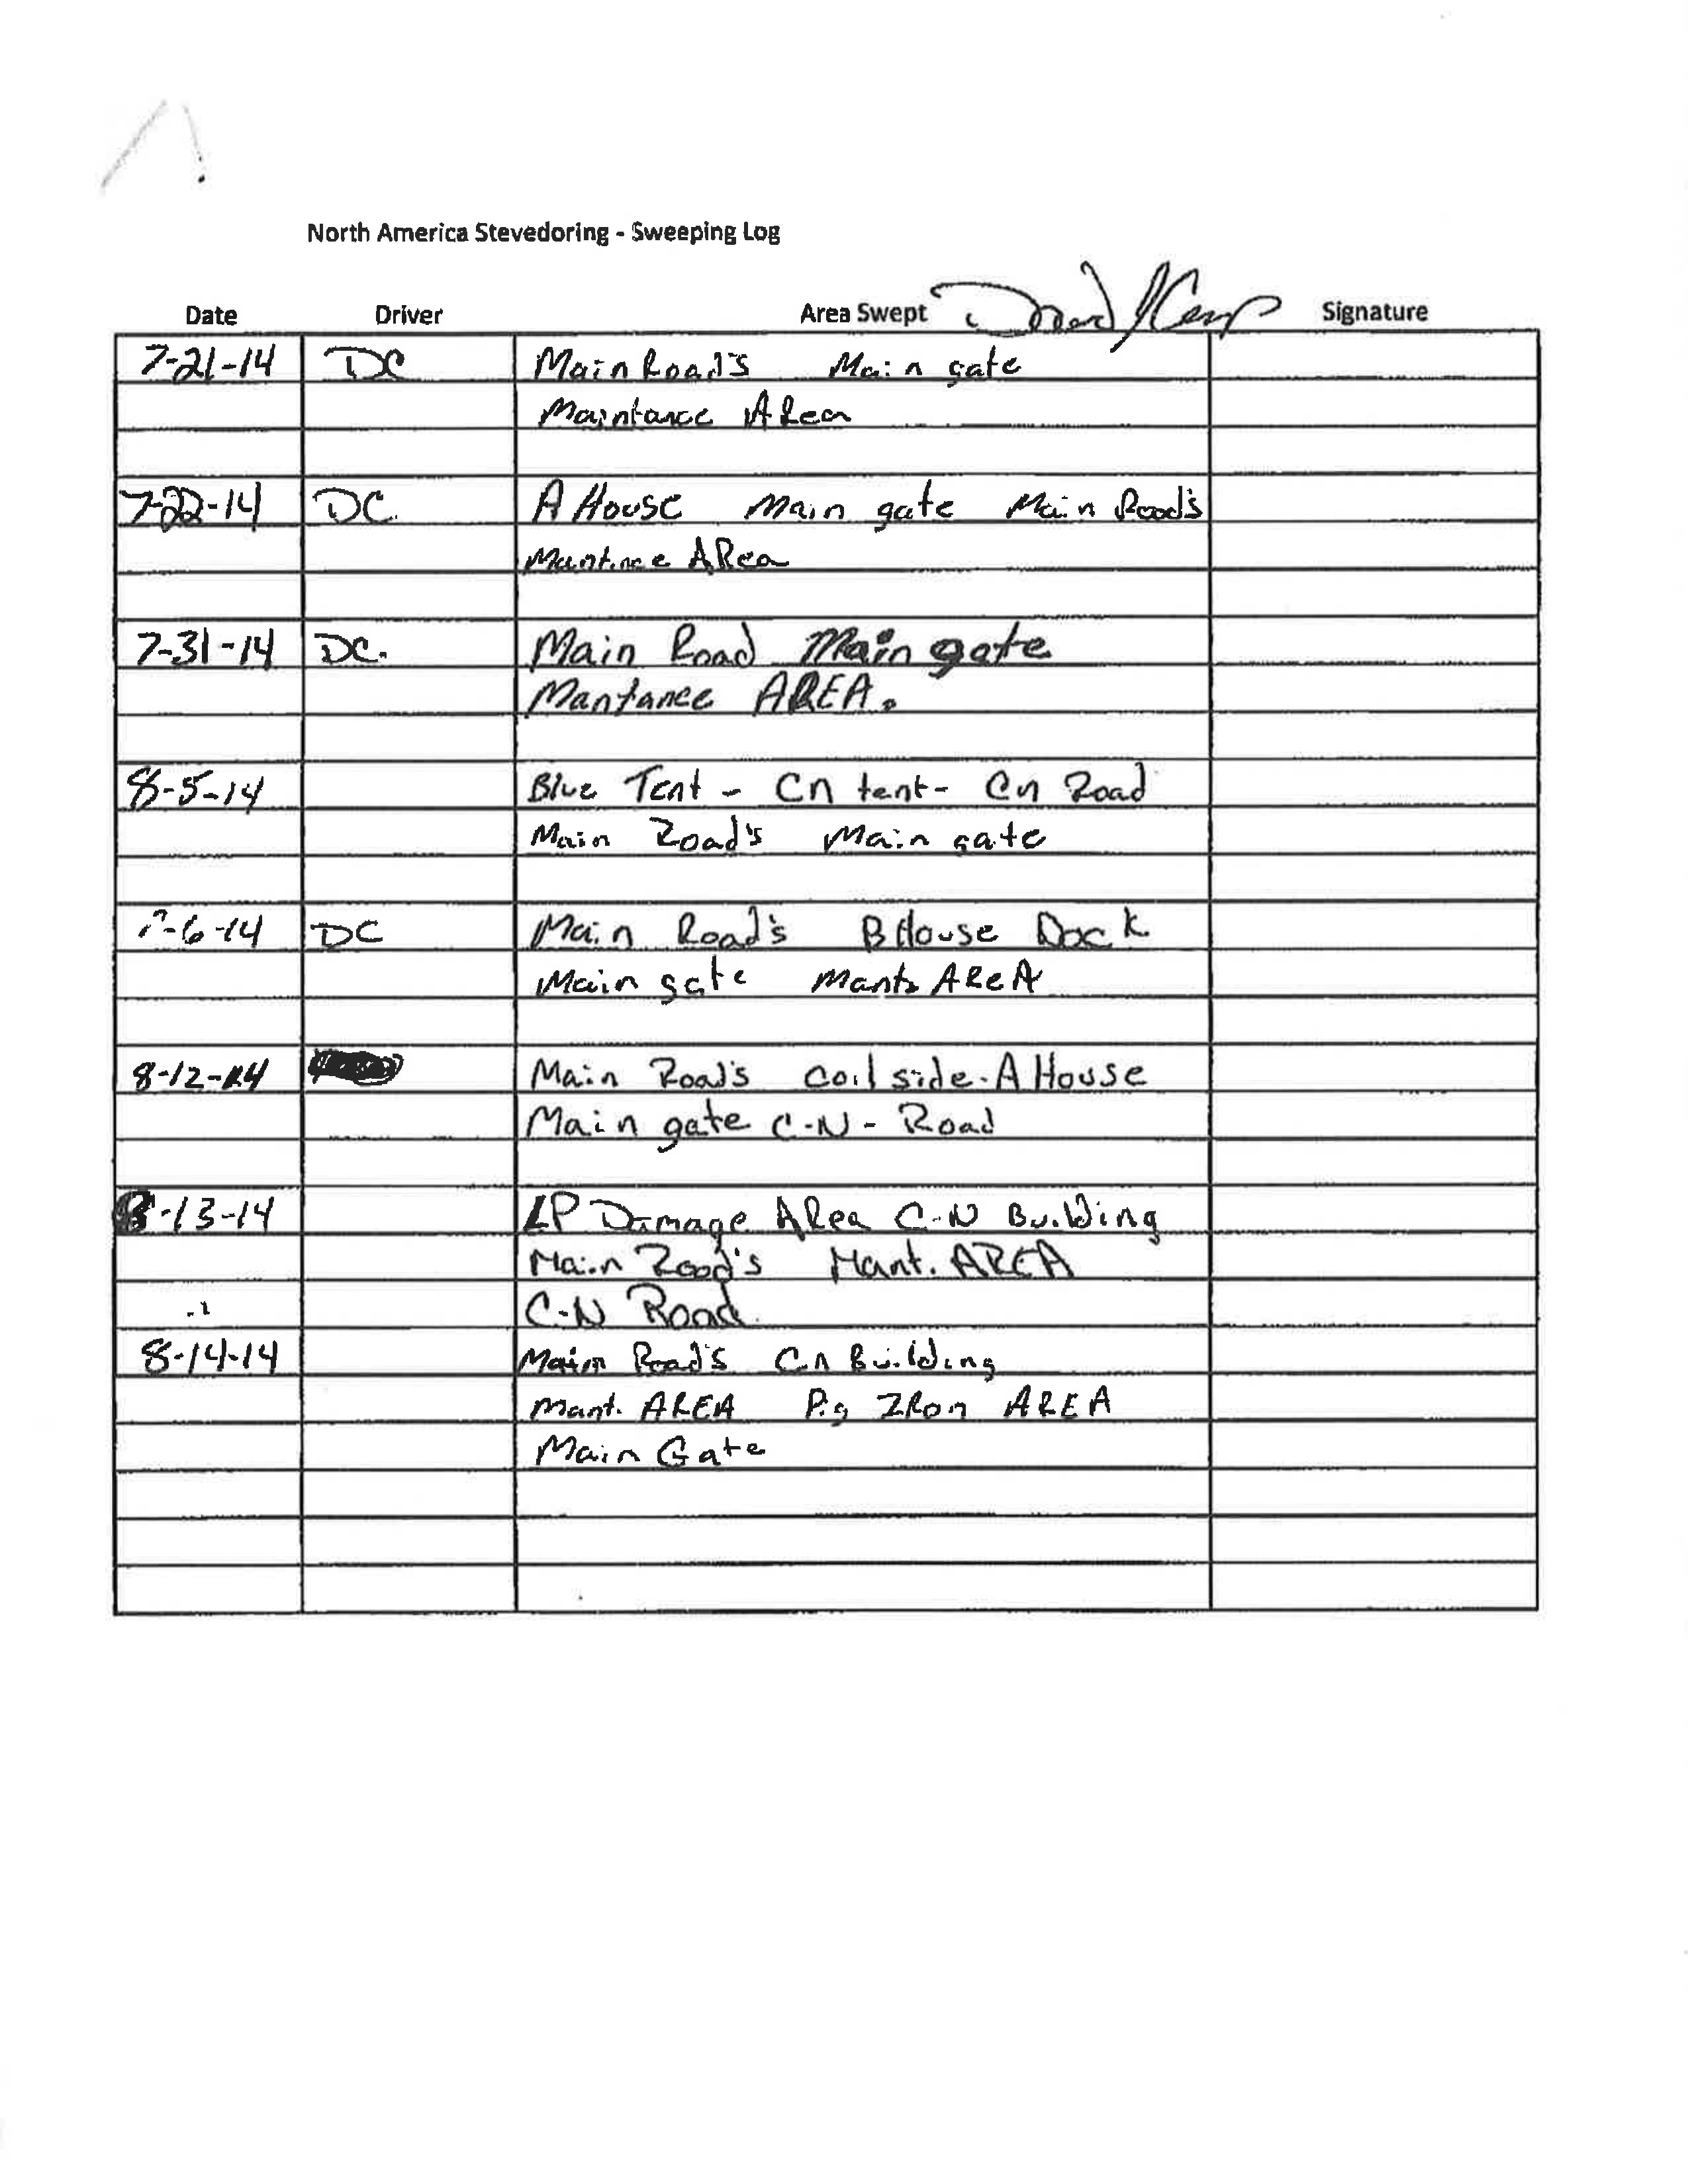 North America Stevedoring - Sweeping Log
Date Driver Area Swept Signature
7-21-14 DC Main Road's Main gate
Maintance Area
7-22-14 DC A House Main gate Main Road's
Mantince Area
7-31-14 DC. Main Road Main gate
Mantance AREA.
8-5-14 Blue Tent - Cn tent - Cn Road
Main Road's Main gate
-6-14 DC Main Road's B House Dock
Main gate AReA
8-12-14 Main Road's coil side - A House
Main gate C-N - Road
8-13-14 LP Damage Area C-N Building
Main Road's Mant. AREA
C-N Road
8-14-14 Main Road's Cn Building
Mant. AREA Pig Iron AREA
Main Gate